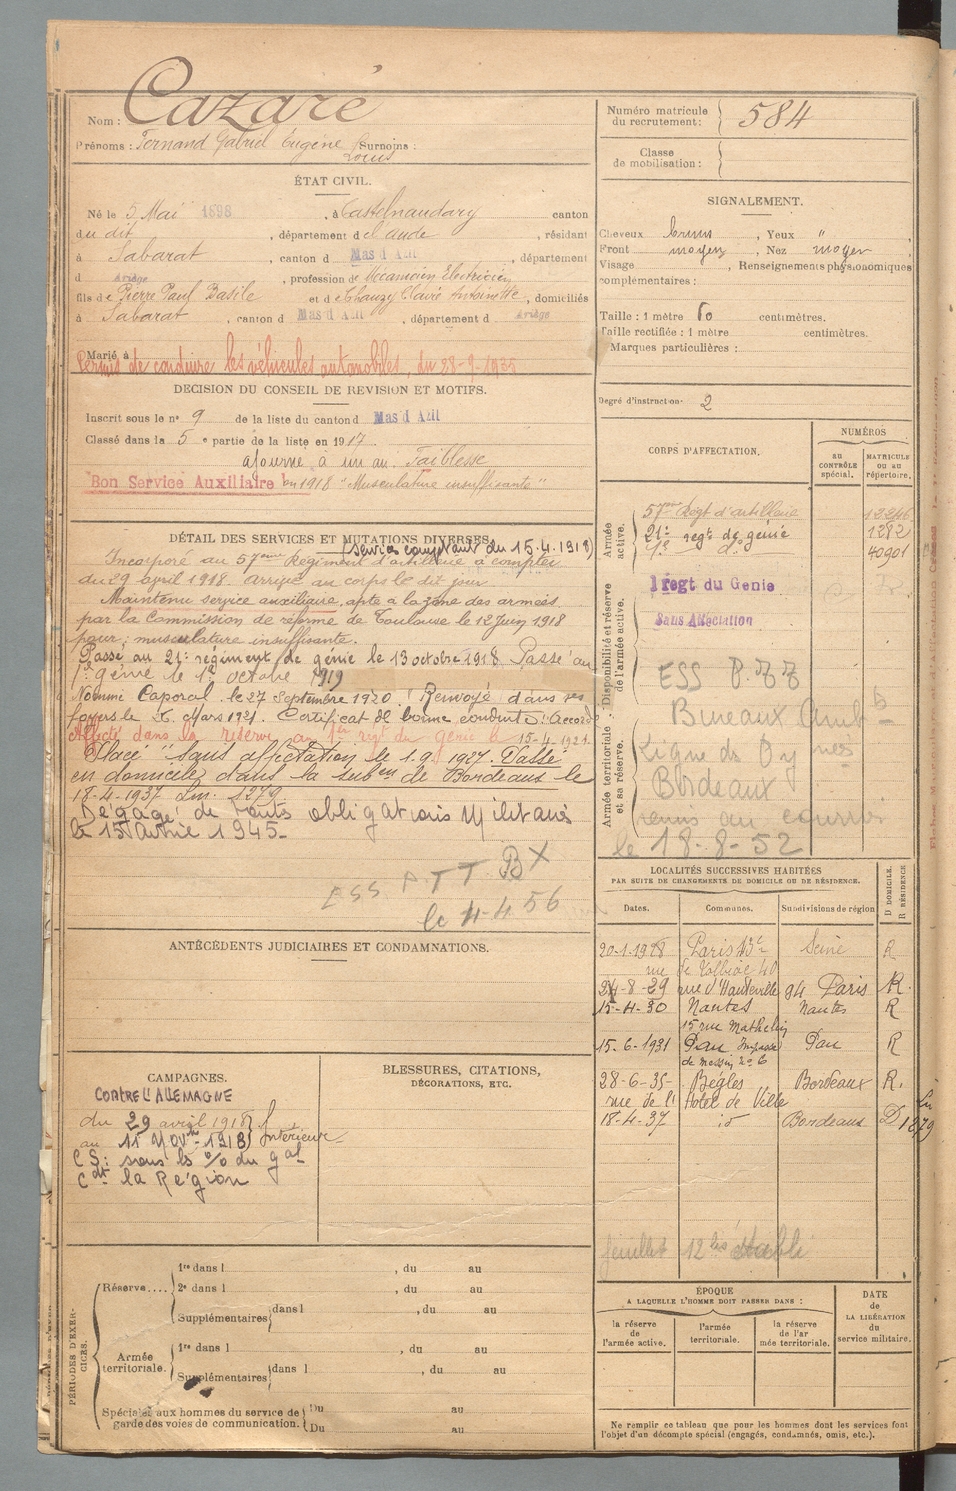 Nom : Cazaré
Prénoms : Fernand Gabriel Eugène Louis Surnoms :
ÉTAT CIVIL.
Né le 5 Mai 1898, à Castelnaudary canton
du dit, département de l'Aude, résidant
à Sabarat, canton d Mas d'Azil, département
d Ariège, profession de Mécanicien Electricien
fils de Pierre Paul Basile et de Clavié Antoinette, domiciliés
à Sabarat, canton d Mas d'Azil, département d Ariège
Marié à
Permis de conduire les véhicules automobiles, du 28-9-1935
DÉCISION DU CONSEIL DE REVISION ET MOTIFS.
Inscrit sous le n° 9 de la liste du canton d Mas d'Azil
Classé dans la 5e partie de la liste en 1917.
ajourné à un an. Faiblesse
Bon Service Auxiliaire en 1918 "Musculature insuffisante"
DÉTAIL DES SERVICES ET MUTATIONS DIVERSES.
(services comptant du 15.4.1918)
Incorporé au 57ème Régiment d'artillerie à compter
du 29 april 1918. arrivé au corps le dit jour
Maintenu service auxiliaire, apte à la zone des armées
par la Commission de réforme de Toulouse le 12 Juin 1918
pour : musculature insuffisante.
Passé au 21e régiment de génie le 13 octobre 1918. Passé au
1er génie le 1er octobre 1919
Nommé Caporal le 27 Septembre 1920. Renvoyé dans ses
foyers le 26 Mars 1921. Certificat de bonne conduite : Accordé
Affecté dans la réserve au 1er régt du génie le 15-4-1921.
Placé "Sans affectation le 1.9.1927. Passé
en domicile dans la subon de Bordeaux le
18-4-1937 Ln. 1279
Dégagé de toutes obligations Militaires
le 15 Avril 1945-
ESS PTT BX
le 4-4 56
ANTÉCÉDENTS JUDICIAIRES ET CONDAMNATIONS.
CAMPAGNES.
CONTRE L'ALLEMAGNE
du 29 avril 1918
au 11 Novbre 1918 } Intérieur
CS: sous les % du gal
Cdt la Région
BLESSURES, CITATIONS,
DÉCORATIONS, ETC.
PÉRIODES D'EXERCICES.
Réserve....
1re dans l , du au
2e dans l , du au
Supplémentaires dans l , du au
Armée territoriale.
1re dans l , du au
Supplémentaires dans l , du au
Spéciales aux hommes du service de
garde des voies de communication.
Du au
Du au
Numéro matricule
du recrutement : 584
Classe
de mobilisation :
SIGNALEMENT.
Cheveux bruns, Yeux "
Front moyen, Nez moyen
Visage , Renseignements physionomiques
complémentaires :
Taille : 1 mètre 60 centimètres.
Taille rectifiée : 1 mètre centimètres.
Marques particulières :
Degré d'instruction : 2
CORPS D'AFFECTATION.
NUMÉROS
AU CONTRÔLE SPÉCIAL.
MATRICULE OU AU RÉPERTOIRE.
Armée active.
57ème Régt d'artillerie 12246
21e regt de génie 1282
1er do 40901
Disponibilité et réserve de l'armée active.
1 regt du Génie
Sans Affectation
Armée territoriale et sa réserve.
ESS P.TT
Bureaux Amb
Ligne des Pynées
Bordeaux
remis au courrier
le 18-8-52
LOCALITÉS SUCCESSIVES HABITÉES
PAR SUITE DE CHANGEMENTS DE DOMICILE OU DE RÉSIDENCE.
Dates. Communes. Subdivisions de région D DOMICILE. R RÉSIDENCE
20-1-1928 Paris 13e Seine R
rue de Tolbiac 40
24-8-29 rue d'Hauteville 94 Paris R.
15-4-30 Nantes Nantes R
15 rue Mathelin
15-6-1931 Pau Impasse Pau R
de Messin no 6
28-6-35- Bègles Bordeaux R.
rue de l'Hotel de Ville
18-4-37 id Bordeaux D Ln 1279
feuillet 12 bis établi
ÉPOQUE
A LAQUELLE L'HOMME DOIT PASSER DANS :
la réserve de l'armée active.
l'armée territoriale.
la réserve de l'armée territoriale.
DATE DE LA LIBÉRATION du service militaire.
Ne remplir ce tableau que pour les hommes dont les services font
l'objet d'un décompte spécial (engagés, condamnés, omis, etc.).